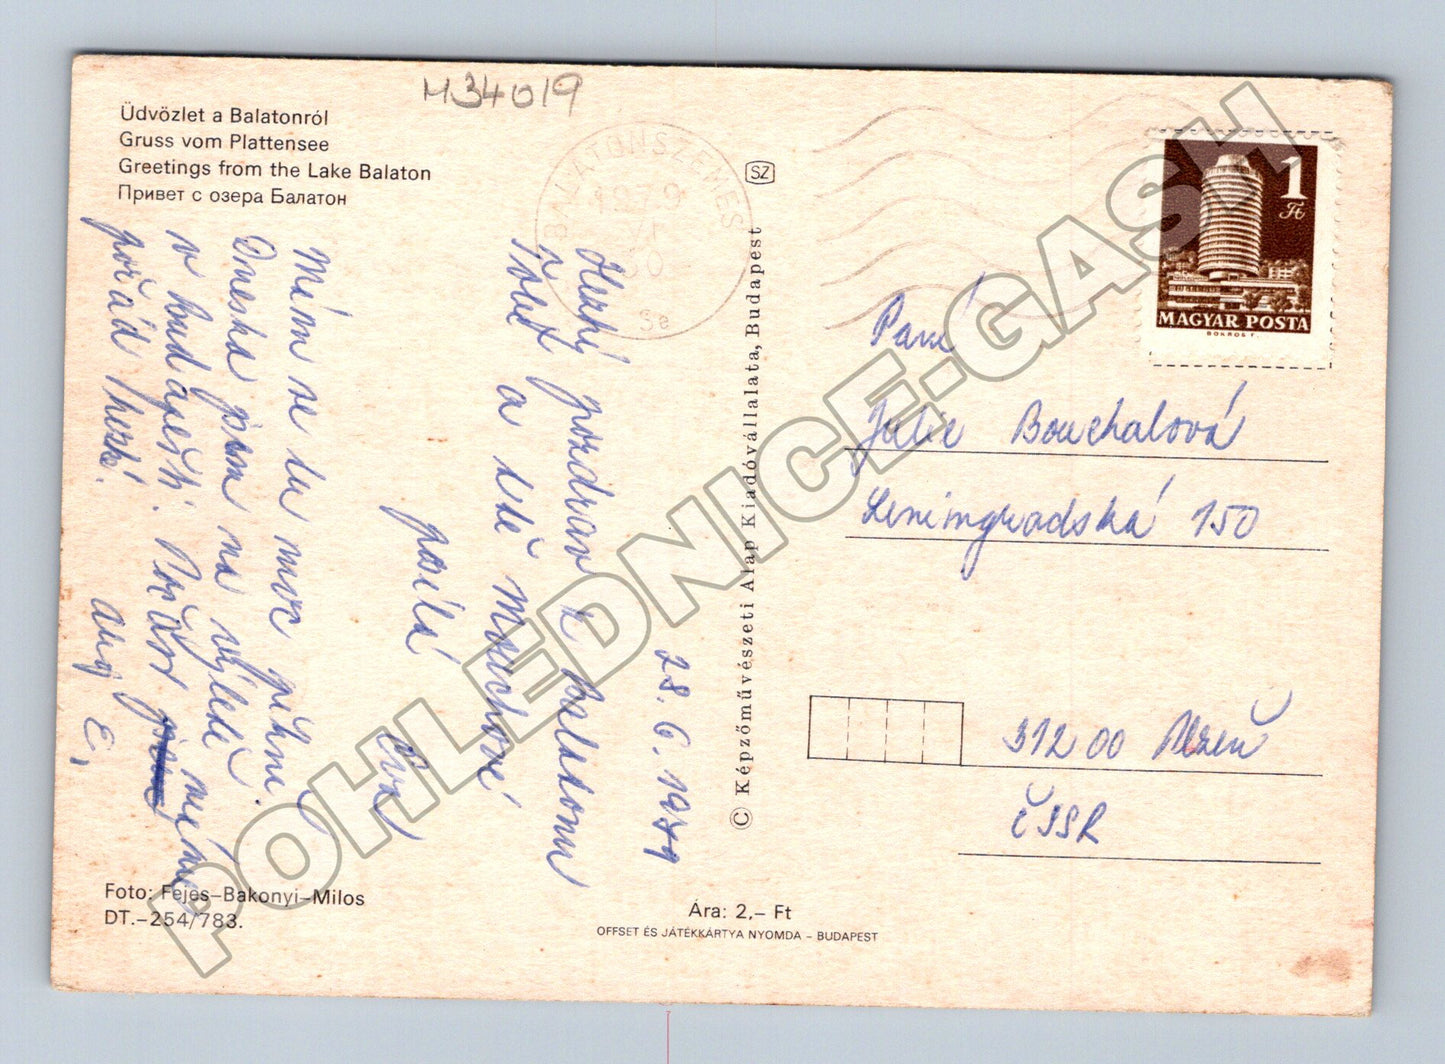 H34019
Üdvözlet a Balatonról
Gruss vom Plattensee
Greetings from the Lake Balaton
Привет с озера Балатон
BALATONSZEMES
1979
VI
30
Se
SZ
1
Ft
MAGYAR POSTA
BOKROS F.
28. 6. 1979
Hezký pozdrav z Balatonu
Vám a celé
posílá
Eva
Mám se tu moc pěkně.
Dneska jsem na výletě
v budapešti. Počásí máme
pořád hezké.
Ahoj E.
© Képzőművészeti Alap Kiadóvállalata, Budapest
Paní
Julie Bouchalová
Leningradská 150
312 00 Plzeň
ČSSR
Foto: Fejes–Bakonyi–Milos
DT.–254/783.
Ára: 2,– Ft
OFFSET ÉS JÁTÉKKÁRTYA NYOMDA – BUDAPEST
POHLEDNICE.GASH